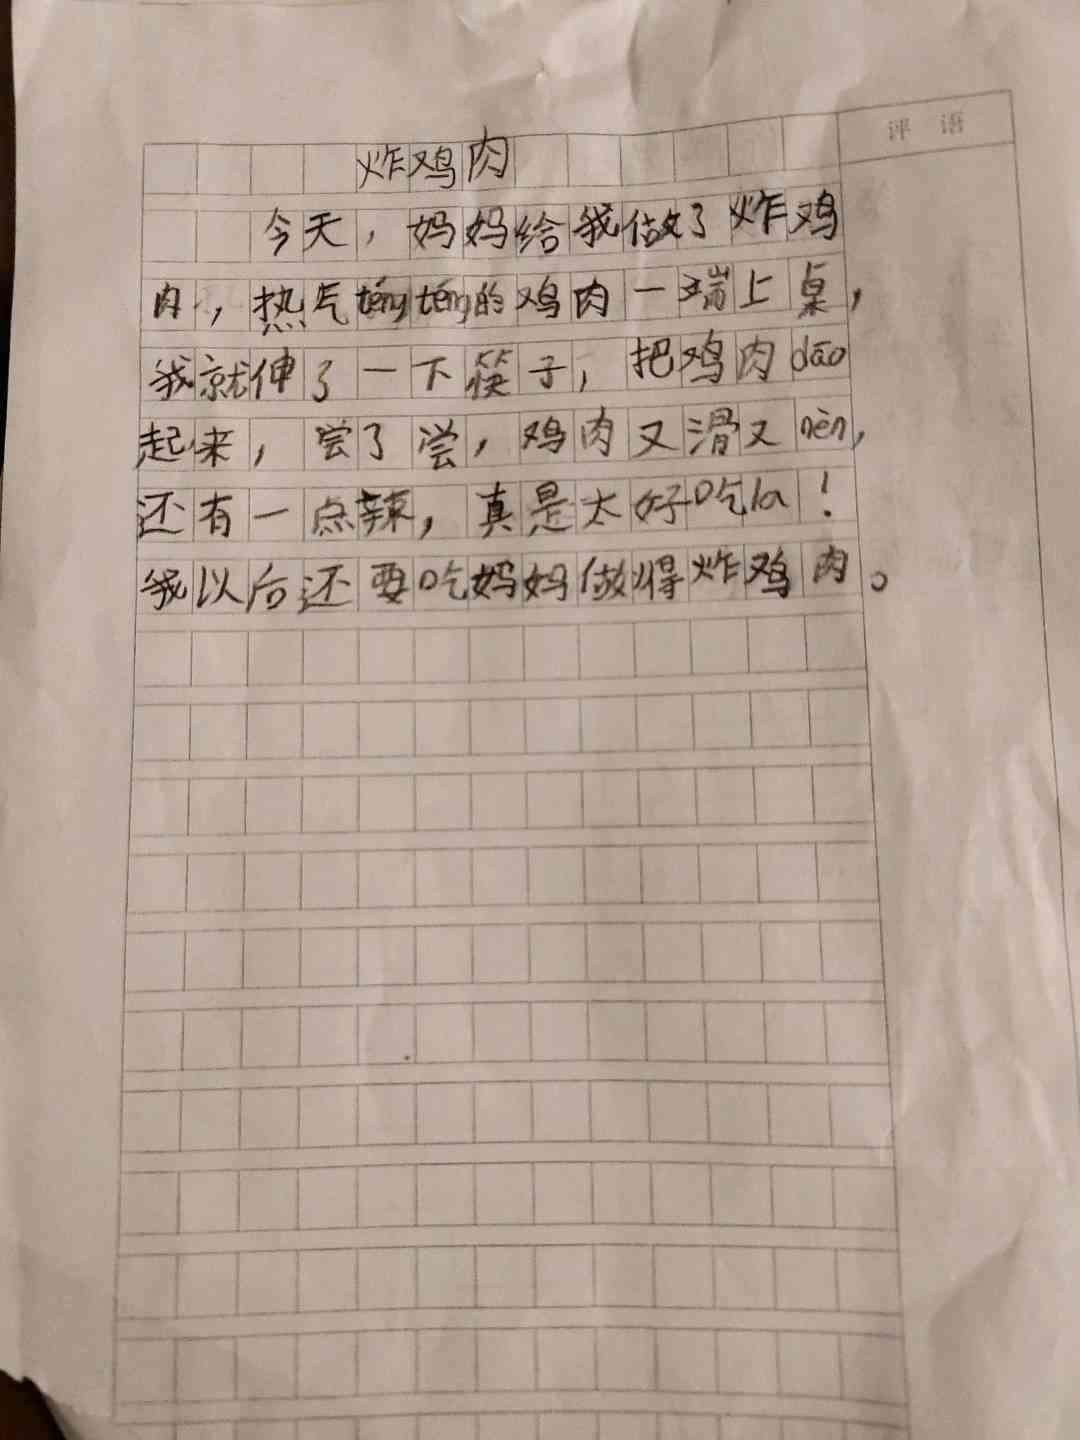 评语
炸鸡肉
今天，妈妈给我做了炸鸡
肉，热气téngténg的鸡肉一端上桌，
我就伸了一下筷子，把鸡肉dāo
起来，尝了尝，鸡肉又滑又nèn，
还有一点辣，真是太好吃la！
我以后还要吃妈妈做得炸鸡肉。